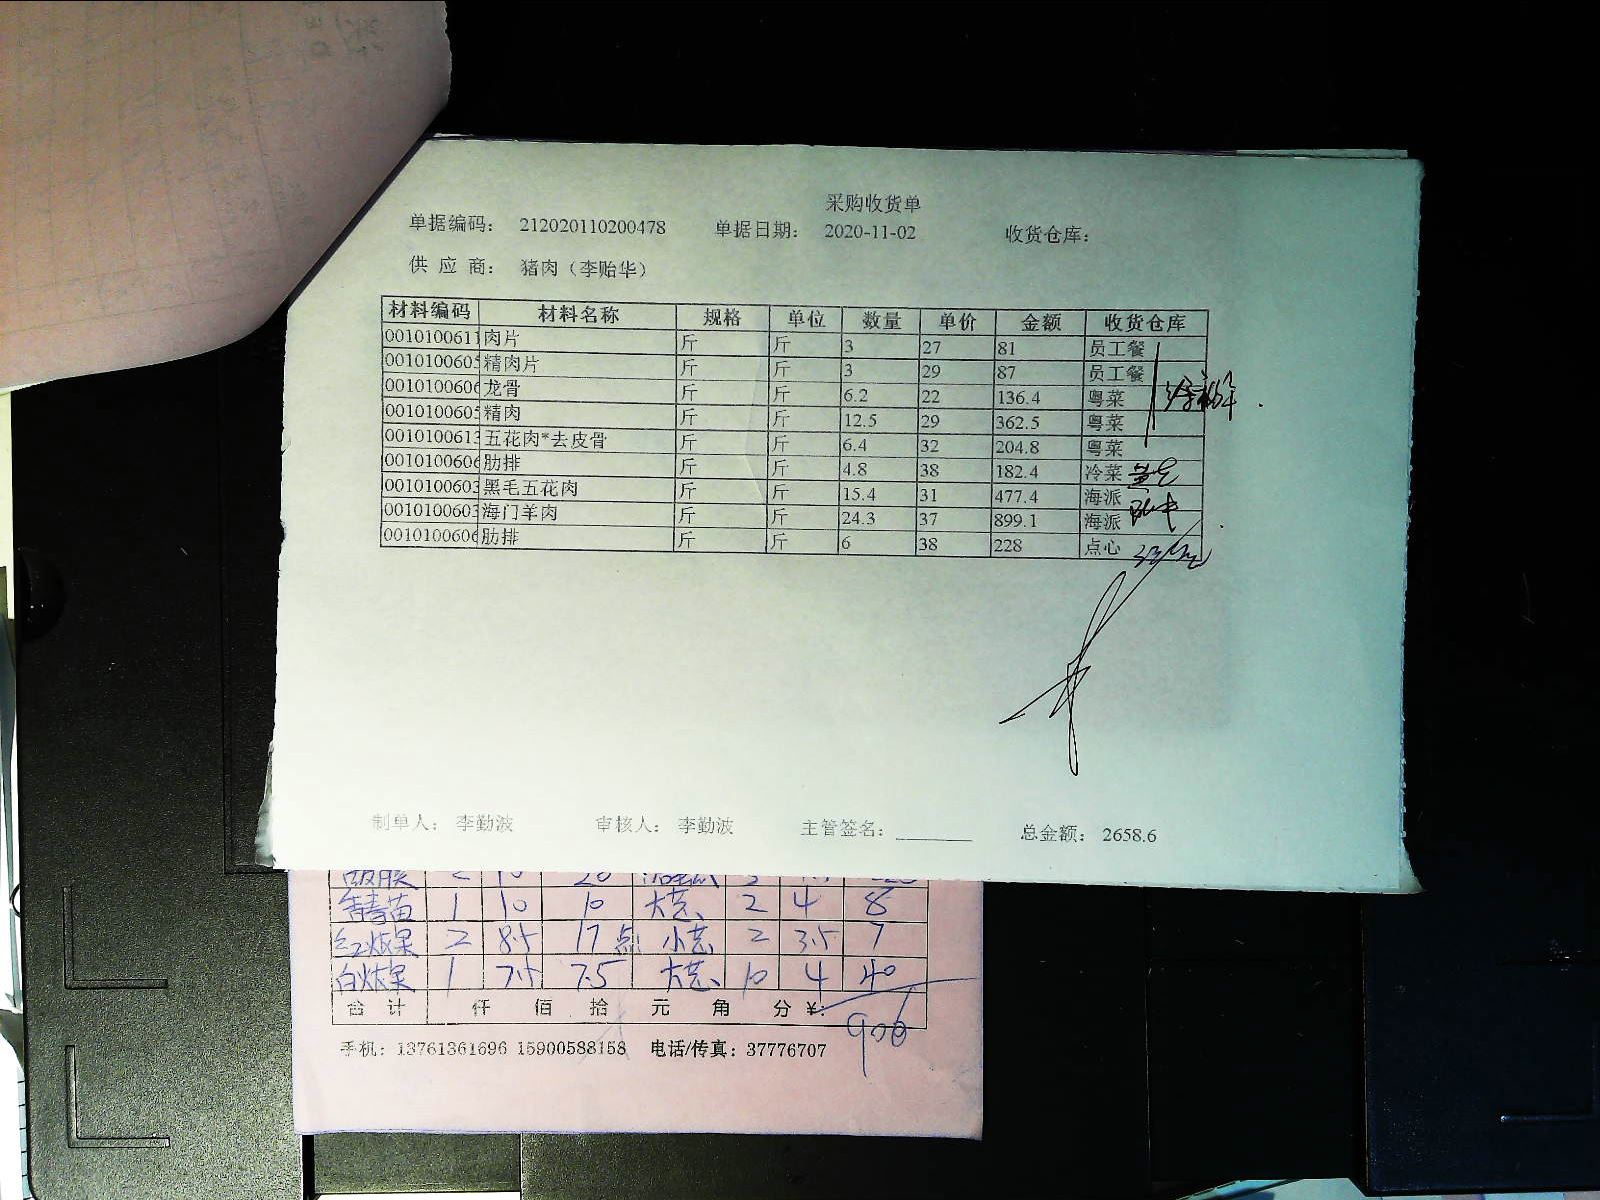 采购收货单
单据编码： 212020110200478 单据日期： 2020-11-02 收货仓库：
供 应 商： 猪肉（李贻华）
材料编码 材料名称 规格 单位 数量 单价 金额 收货仓库
0010100611 肉片 斤 斤 3 27 81 员工餐
001010060 精肉片 斤 斤 3 29 87 员工餐
001010060 龙骨 斤 斤 6.2 22 136.4 粤菜
001010060 精肉 斤 斤 12.5 29 362.5 粤菜
001010061 五花肉*去皮骨 斤 斤 6.4 32 204.8 粤菜
001010060 肋排 斤 斤 4.8 38 182.4 冷菜
001010060 黑毛五花肉 斤 斤 15.4 31 477.4 海派
001010060 海门羊肉 斤 斤 24.3 37 899.1 海派
001010060 肋排 斤 斤 6 38 228 点心
制单人： 李勤波 审核人： 李勤波 主管签名： 总金额： 2658.6
1 10 10 2 4 8
2 8.5 17 点 2 3.5 7
1 7.5 7.5 10 4 40
合 计 仟 佰 拾 元 角 分 ￥:
手机：13761361696 15900588158 电话/传真：37776707